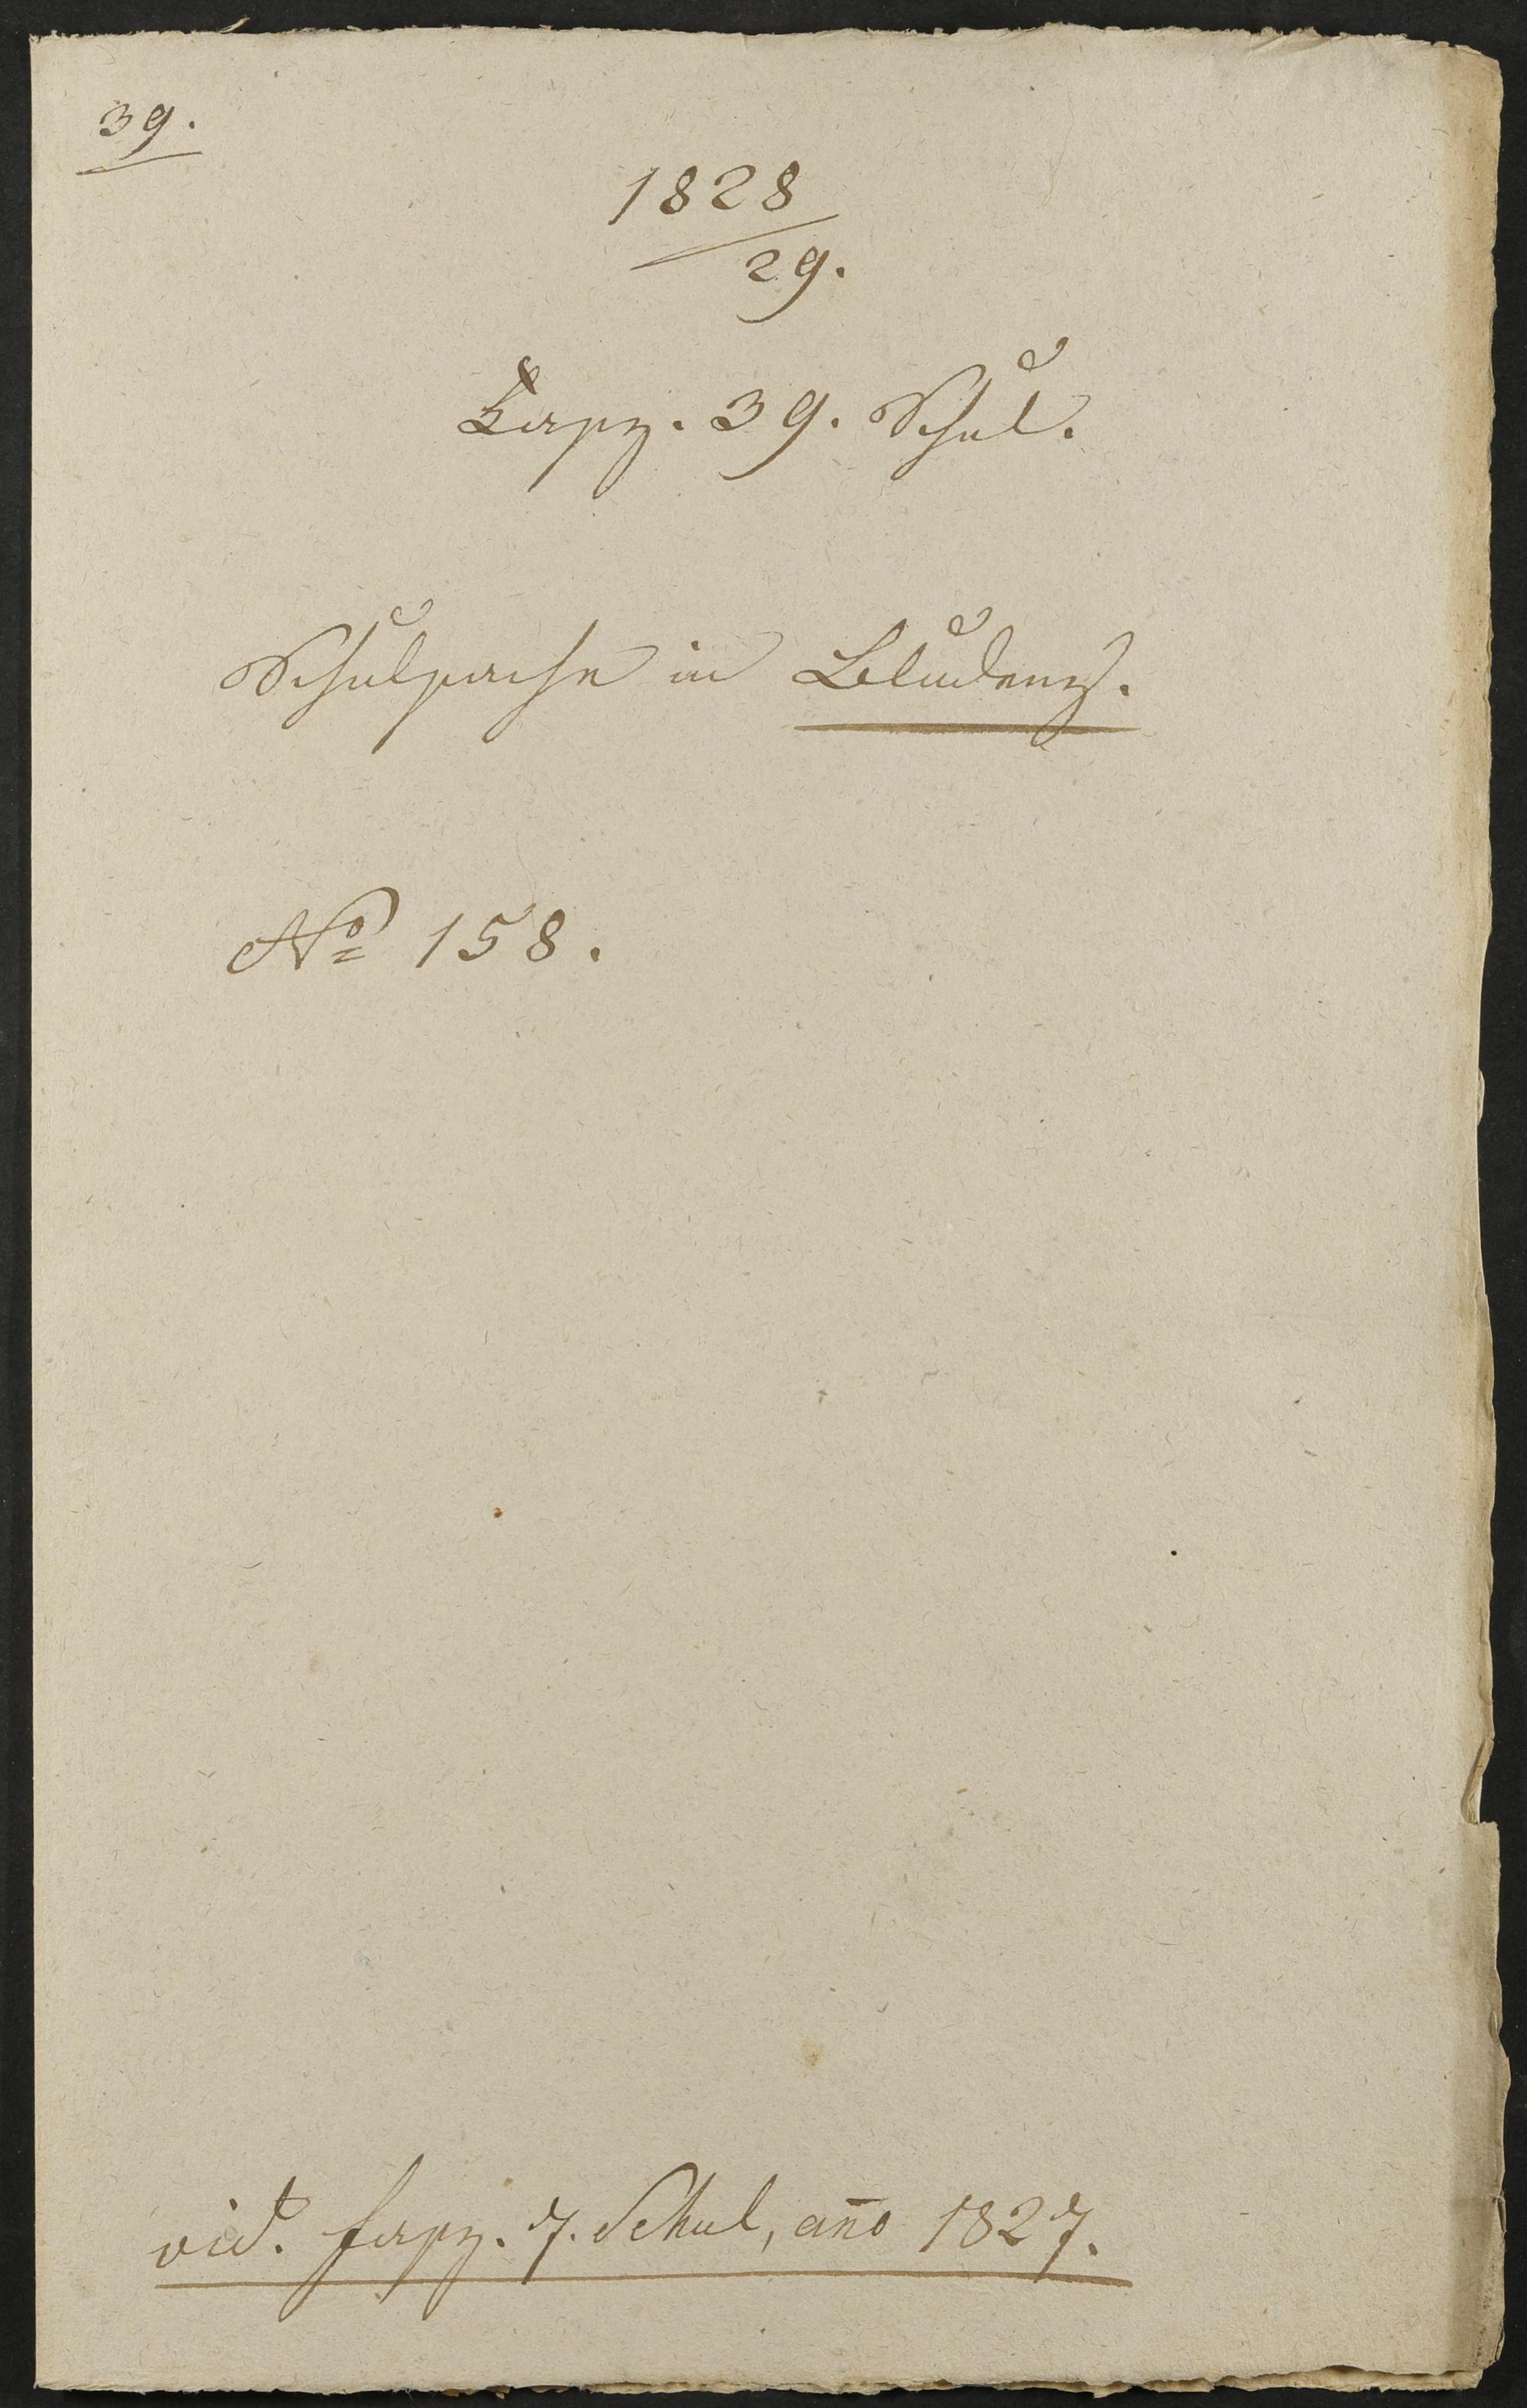 39.
1828
29.
Fasz. 39. Schul.
Schulsache in Bludenz.
No 158.
vid. fasz. 7. Schul, an̄o 1827.